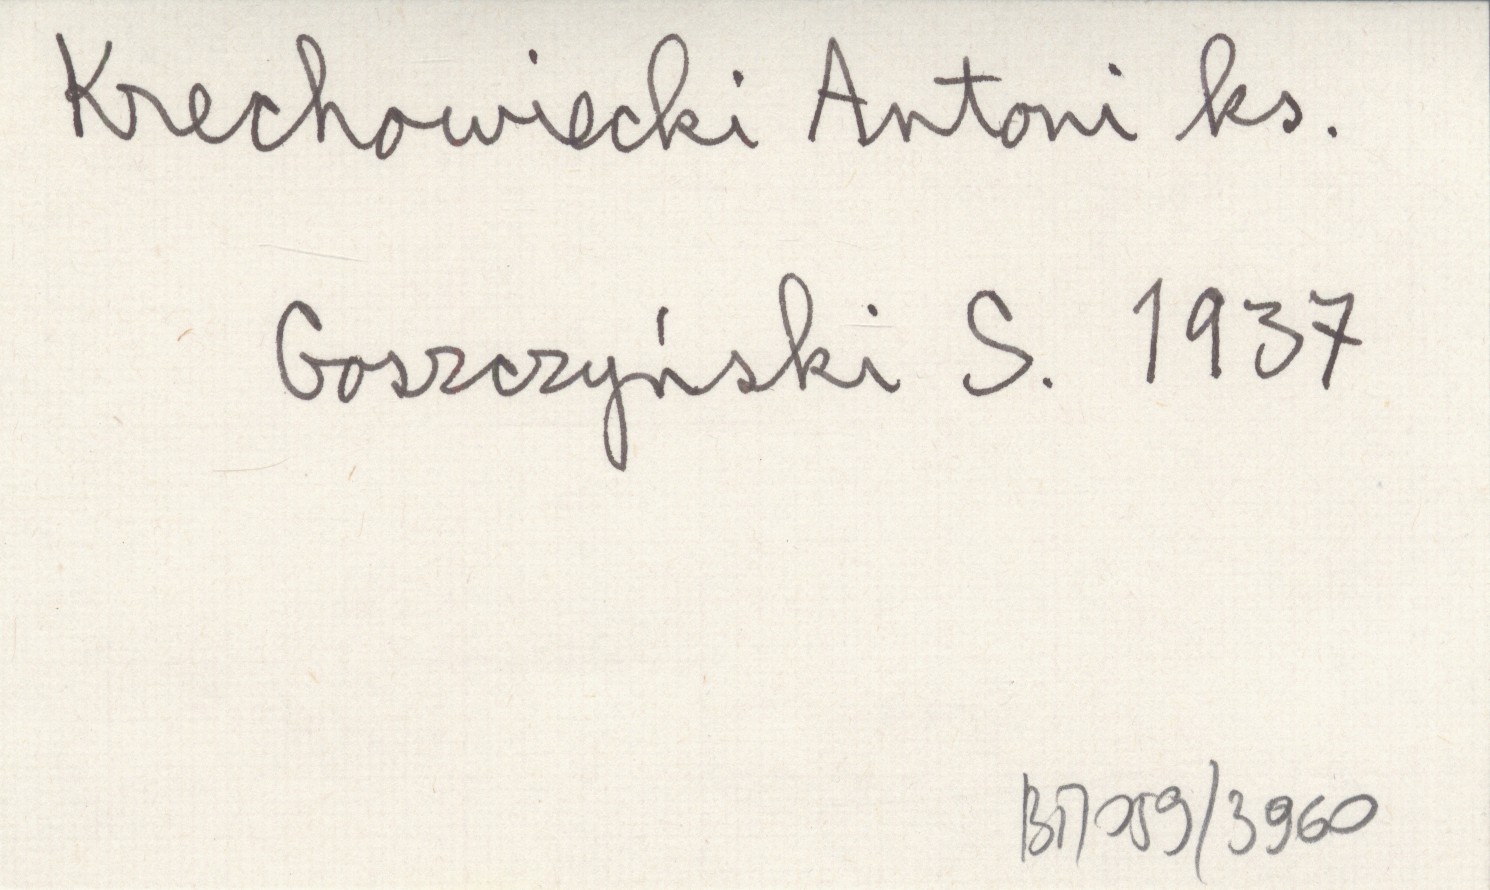 Krechowiecki Antoni ks.
Goszczyński S. 1937